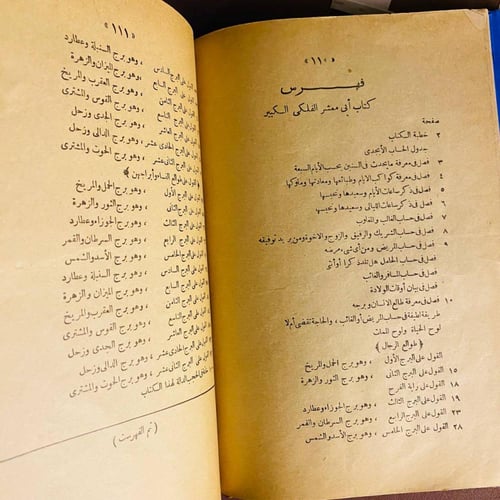 «١١٠»
فهرس
كتاب أبى معشر الفلكى الكبير
صفحة
٢ خطبة الكتاب
جدول الحساب الأبجدى
٣ فصل فى معرفة ما يحدث فى السنين بحسب الأيام السبعة
٤ فصل فى معرفة كواكب الايام وطبائعها ومعادنها وملوكها
٥ فصل فى ذكر ساعات الأيام وسعيدها ونحيسها
٦ فصل فى ذكر ساعات الليالى وسعيدها ونحيسها
٧ فصل فى حساب الغالب والمغلوب
٨ فصل فى حساب الشريك والرفيق والزوج والاخوة ومن يريد توفيقه
٩ فصل فى حساب المريض ومن أى شىء مرضه
فصل فى حساب الحامل هل تلد ذكرا أو أنثى
فصل فى حساب المسافر والغائب
فصل فى بيان أوقات الولادة
١٠ فصل فى معرفة طالع الانسان وبرجه
طريقة لطيفة فى حساب المريض أو الغائب ، والحاجة تقضى أم لا
لوح الحياة ولوح الممات
( طوالع الرجال )
القول على البرج الأول ، وهو برج الحمل والمريخ
١٥ القول على البرج الثانى ، وهو برج الثور والزهرة
١٨ القول على راية الفرح
القول على البرج الثالث ، وهو برج الجوزاء وعطارد
٢٣ القول على البرج الرابع ، وهو برج السرطان والقمر
٢٨ القول على البرج الخامس ، وهو برج الأسد والشمس
«١١١»
القول على البرج السادس ، وهو برج السنبلة وعطارد
القول على البرج السابع ، وهو برج الميزان والزهرة
القول على البرج الثامن ، وهو برج العقرب والمريخ
القول على البرج التاسع ، وهو برج القوس والمشترى
القول على البرج العاشر ، وهو برج الجدى وزحل
القول على البرج الحادى عشر ، وهو برج الدالى وزحل
القول على البرج الثانى عشر ، وهو برج الحوت والمشترى
( طوالع النساء وأبراجهن )
القول على البرج الأول ، وهو برج الحمل والمريخ
القول على البرج الثانى ، وهو برج الثور والزهرة
القول على البرج الثالث ، وهو برج الجوزاء وعطارد
القول على البرج الرابع ، وهو برج السرطان والقمر
القول على البرج الخامس ، وهو برج الأسد والشمس
القول على البرج السادس ، وهو برج السنبلة وعطارد
القول على البرج السابع ، وهو برج الميزان والزهرة
القول على البرج الثامن ، وهو برج العقرب والمريخ
القول على البرج التاسع ، وهو برج القوس والمشترى
القول على البرج العاشر ، وهو برج الجدى وزحل
القول على البرج الحادى عشر ، وهو برج الدالى وزحل
القول على البرج الثانى عشر ، وهو برج الحوت والمشترى
لهذا الكتاب
( تم الفهرست )